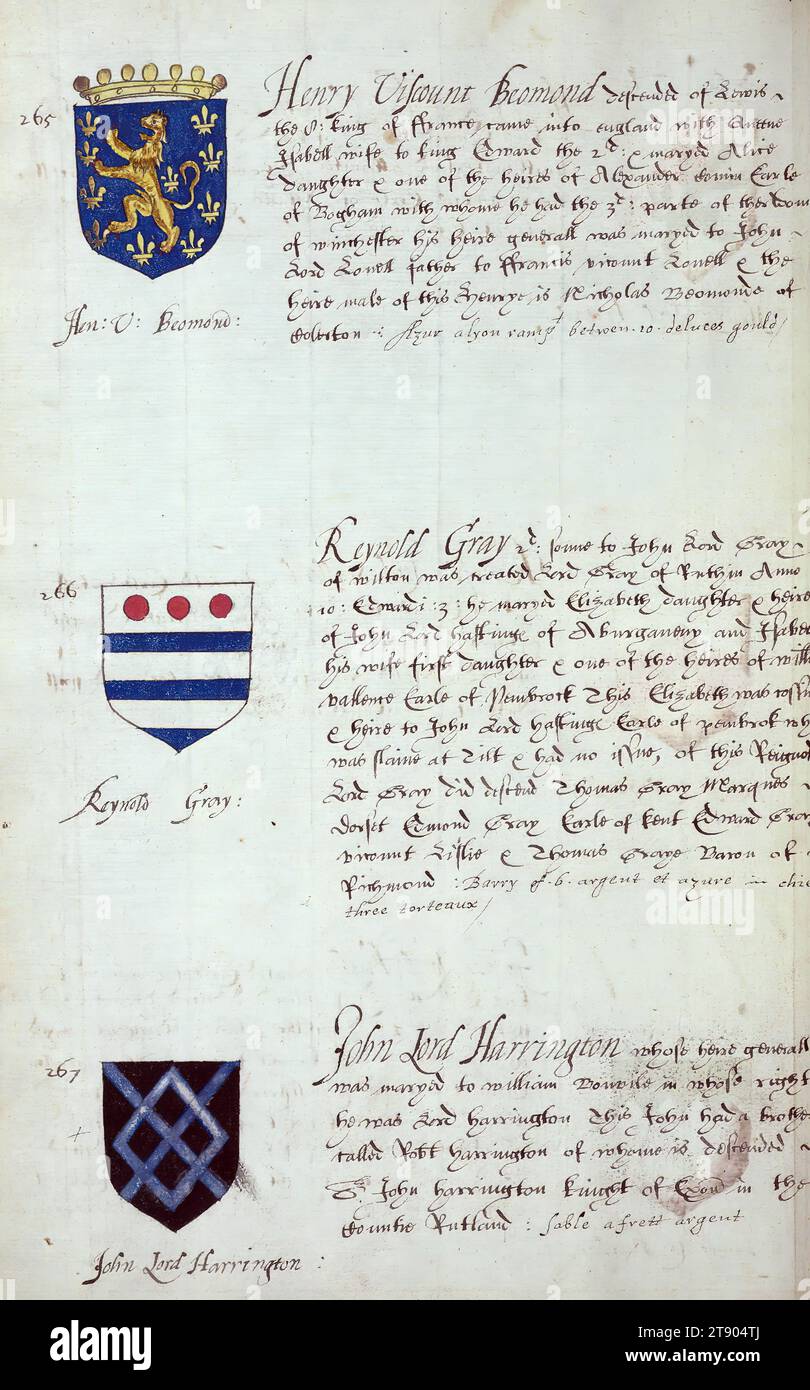 265
Henry Viscount Beomond descended of Lewis
the 8: king of ffrance came into england with Queene
Isabell wife to king Edward the 2d: & maryed Alice
daughter & one of the heires of Alexander Comin Earle
of Bogham with whome he had the 3d: parte of
of winchester his heire generall was maryed to John
Lord Lovell father to ffrancis vicount Lovell & the
heire male of this Henrye is Nicholas Beomonde of
Colerton : Azur a lyon rampt betwen .10. deluces gould /
Hen: V: Beomond:
266
Reynold Gray 2d: sonne to John Lord Gray
of wilton was created Lord Gray of Ruthin Anno
10: Edwardi: 3: he maryed Elizabeth daughter & heire
of John Lord hastinge of Aburgaveny and Isabell
his wife first daughter & one of the heires of willm
vallence Earle of Pembrock This Elizabeth was
& heire to John Lord hastinge Earle of pembrok who
was slaine at Tilt & had no issue, of this Reignold
Lord Gray did descend Thomas Gray Marques
dorset Edmond Gray Earle of kent Edward Gray
vicount Lislie & Thomas Graye Baron of
Richmond : Barry of .6. argent et azure in chie
three torteaux /
Reynold Gray:
267
John Lord Harrington whose heire generall
was maryed to william Bonvile in whose right
he was Lord harrington This John had a brother
called Robt harrington of whome is descended
Sr John harrington knight of Exon in the
Countie Rutland : Sable a frett argent
John Lord Harrington :
alamy
Image ID: 2T904TJ
www.alamy.com